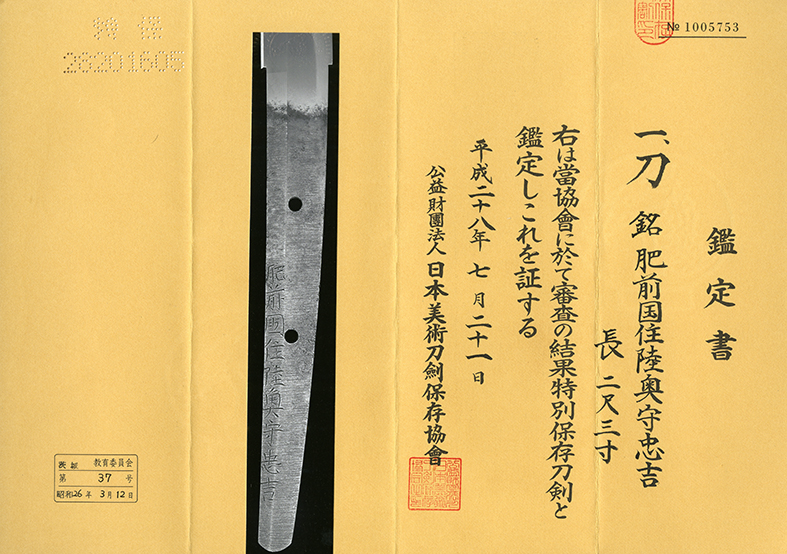 № 1005753
鑑定書
一、刀 銘 肥前国住陸奥守忠吉
長 二尺三寸
右は當協會に於て審査の結果特別保存刀剣と
鑑定しこれを証する
平成二十八年 七月 二十一日
公益財團法人 日本美術刀劍保存協會
肥前国住陸奥守忠吉
特保
28201605
茨城 教育委員会
第 37 号
昭和26年 3月12日